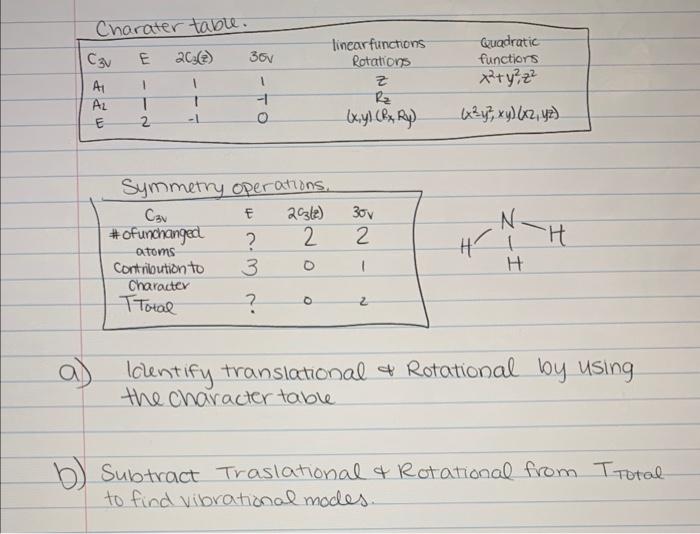 Charater table.
C3v E 2C3(z) 3σv linear functions Rotations Quadratic functions
A1 1 1 1 z x²+y², z²
A2 1 1 -1 Rz
E 2 -1 0 (x,y) (Rx, Ry) (x²-y², xy) (xz, yz)
Symmetry operations.
C3v E 2C3(z) 3σv
# of unchanged atoms ? 2 2
Contribution to Character 3 0 1
TTotal ? 0 2
N
H H
H
a) Identify translational & Rotational by using
the character table
b) Subtract Traslational & Rotational from TTotal
to find vibrational modes.